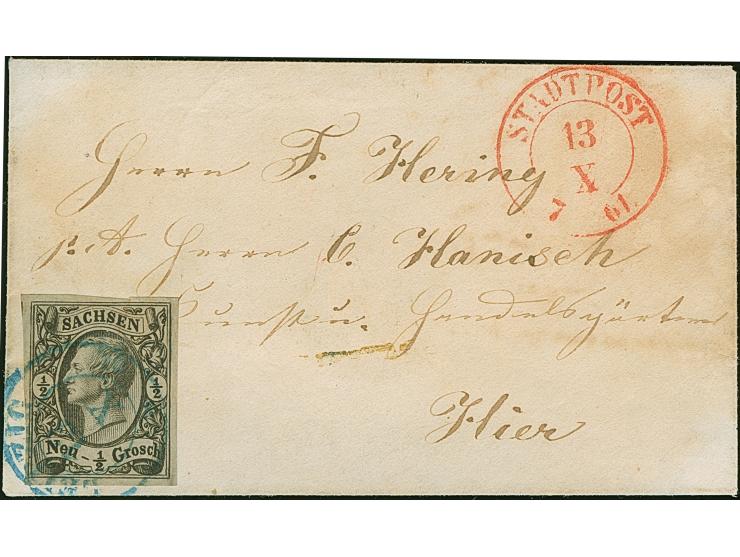 STADTPOST
13
X
61.
Herrn F. Hering
p. A. Herrn C. Hanisch
Kunst u. Handelsgärtner
Hier
SACHSEN
½ ½
Neu - ½ Grosch